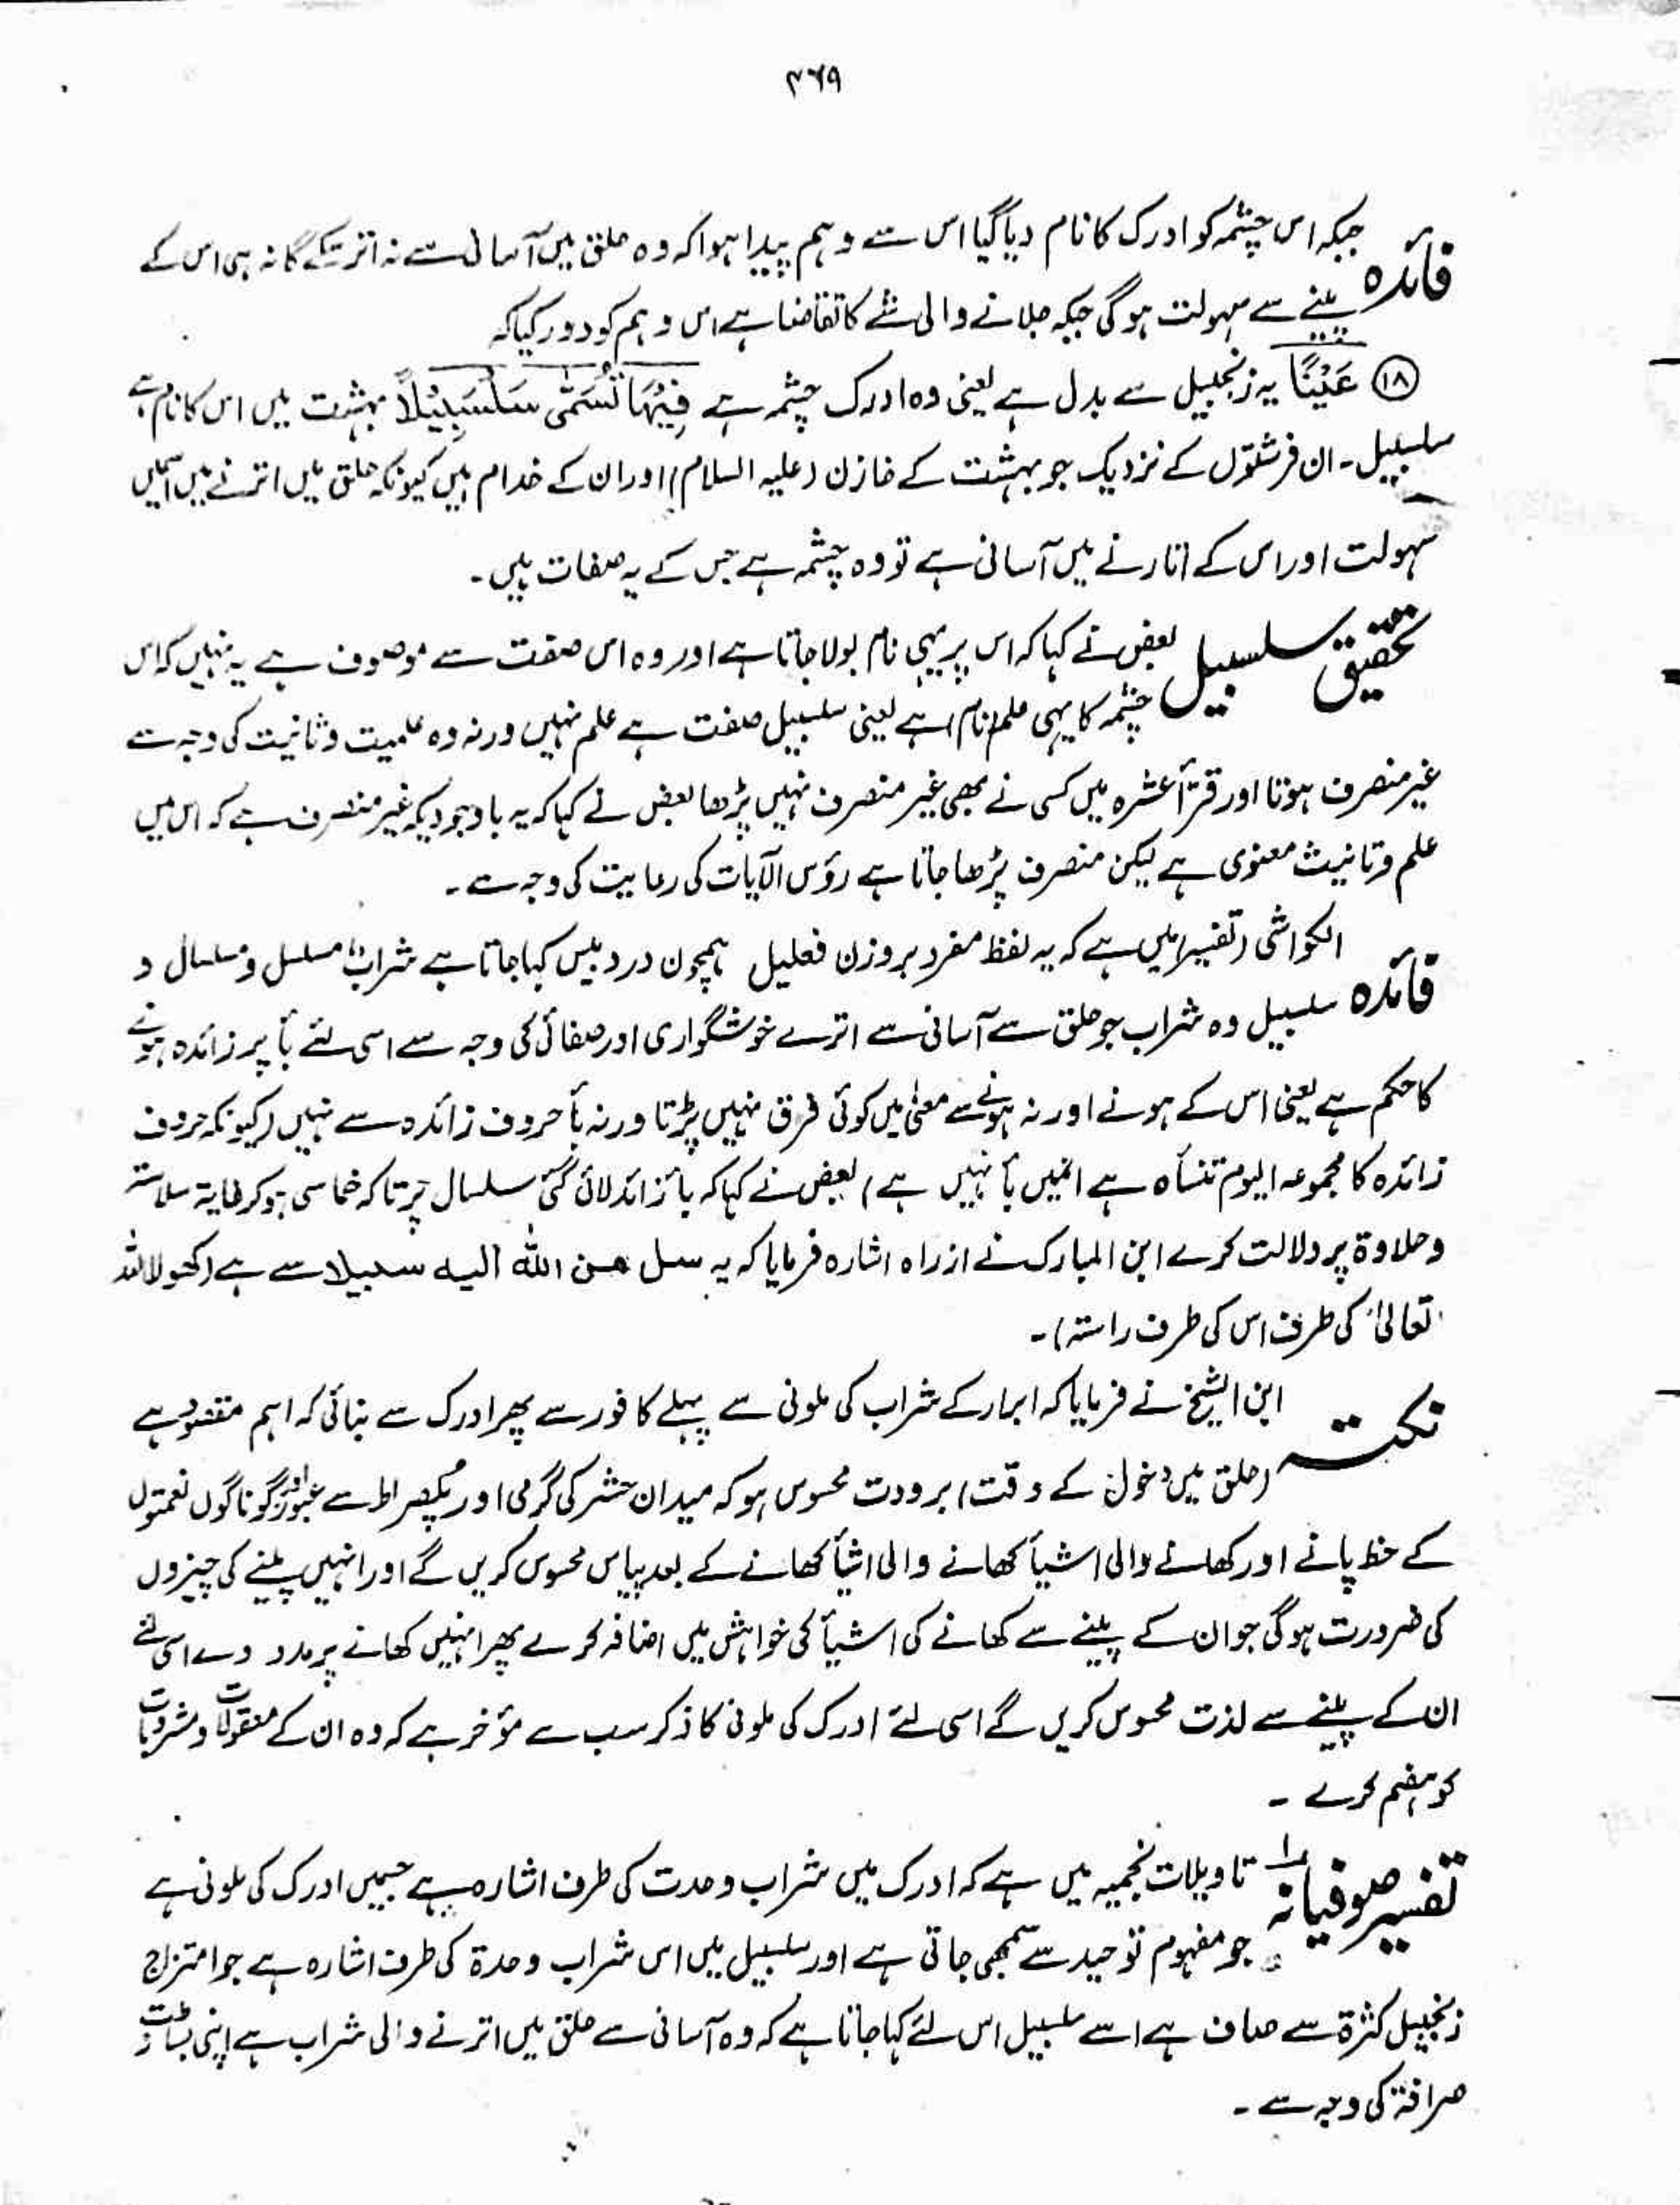 ۳۶۹
فائدہ جبکہ اس چشمہ کو ادرک کا نام دیا گیا اس سے وہم پیدا ہوا کہ وہ حلق میں آسانی سے نہ اتر سکے گا نہ ہی اس کے
پینے سے سہولت ہو گی جبکہ جلانے والی شئے کا تقاضا ہے اس وہم کو دور کیا کہ
⑱ عَيْنًا یہ زنجبیل سے بدل ہے یعنی وہ ادرک چشمہ ہے فِيْهَا تُسَمّٰى سَلْسَبِيْلًا بہشت میں اس کا نام ہے
سلسبیل۔ ان فرشتوں کے نزدیک جو بہشت کے خازن (علیہ السلام) اور ان کے خدام ہیں کیونکہ حلق میں اترنے میں اسمیں
سہولت اور اس کے اتارنے میں آسانی ہے تو وہ چشمہ ہے جس کے یہ صفات ہیں۔
تحقیق سلسبیل بعض نے کہا کہ اس پر یہی نام بولا جاتا ہے اور وہ اس صفت سے موصوف ہے یہ نہیں کہ اس
چشمہ کا یہی علم (نام) ہے یعنی سلسبیل صفت ہے علم نہیں ورنہ وہ علمیت و ثانیت کی وجہ سے
غیر منصرف ہوتا اور قرأ عشرہ میں کسی نے بھی غیر منصرف نہیں پڑھا بعض نے کہا کہ یہ باوجودیکہ غیر منصرف ہے کہ اس میں
علم و تانیث معنوی ہے لیکن منصرف پڑھا جاتا ہے رؤس الآیات کی رعایت کی وجہ سے۔
فائدہ الکواشی (تفسیر) میں ہے کہ یہ لفظ مفرد بروزن فعلیل ہمچون دردبیس کہا جاتا ہے شراب مسلسل و سلسال و
سلسبیل وہ شراب جو حلق سے آسانی سے اترے خوشگواری اور صفائی کی وجہ سے اسی لئے بأ پر زائدہ ہونے
کا حکم ہے یعنی اس کے ہونے اور نہ ہونے سے معنیٰ میں کوئی فرق نہیں پڑتا ورنہ بأ حروف زائدہ سے نہیں (کیونکہ حروف
زائدہ کا مجموعہ الیوم تنساہ ہے انمیں بأ نہیں ہے) بعض نے کہا کہ بأ زائد لائی گئی سلسال پر تا کہ خماسی ہو کر غایۃ سلاستہ
و حلاوۃ پر دلالت کرے ابن المبارک نے از راہ اشارہ فرمایا کہ یہ سل من اللہ الیه سبیلا سے ہے (کھولا اللہ
تعالیٰ کی طرف اس کی طرف راستہ)۔
نکتہ ابن الشیخ نے فرمایا کہ ابرار کے شراب کی ملونی سے پہلے کافور سے پھر ادرک سے بتائی کہ اہم مقصود ہے
(حلق میں دخول کے وقت) برودت محسوس ہو کہ میدان حشر کی گرمی اور پلصراط سے عبور اور گوناگوں نعمتوں
کے حظ پانے اور کھانے والی اشیأ کھانے والی اشیأ کھانے کے بعد پیاس محسوس کریں گے اور انہیں پینے کی چیزوں
کی ضرورت ہو گی جو ان کے پینے سے کھانے کی اشیأ کی خواہش میں اضافہ کرے پھر انہیں کھانے پر مدد دے اسی لئے
ان کے پینے سے لذت محسوس کریں گے اسی لئے ادرک کی ملونی کا ذکر سب سے مؤخر ہے کہ وہ ان کے معقولات و مشروبات
کو ہضم کرے۔
تفسیر صوفیانہ تاویلات نجمیہ میں ہے کہ ادرک میں شراب وحدت کی طرف اشارہ ہے جسمیں ادرک کی ملونی ہے
جو مفہوم توحید سے سمجھی جاتی ہے اور سلسبیل میں اس شراب وحدۃ کی طرف اشارہ ہے جو امتزاج
زنجبیل کثرۃ سے صاف ہے اسے سلسبیل اس لئے کہا جاتا ہے کہ وہ آسانی سے حلق میں اترنے والی شراب ہے اپنی بساطت و
صرافۃ کی وجہ سے۔